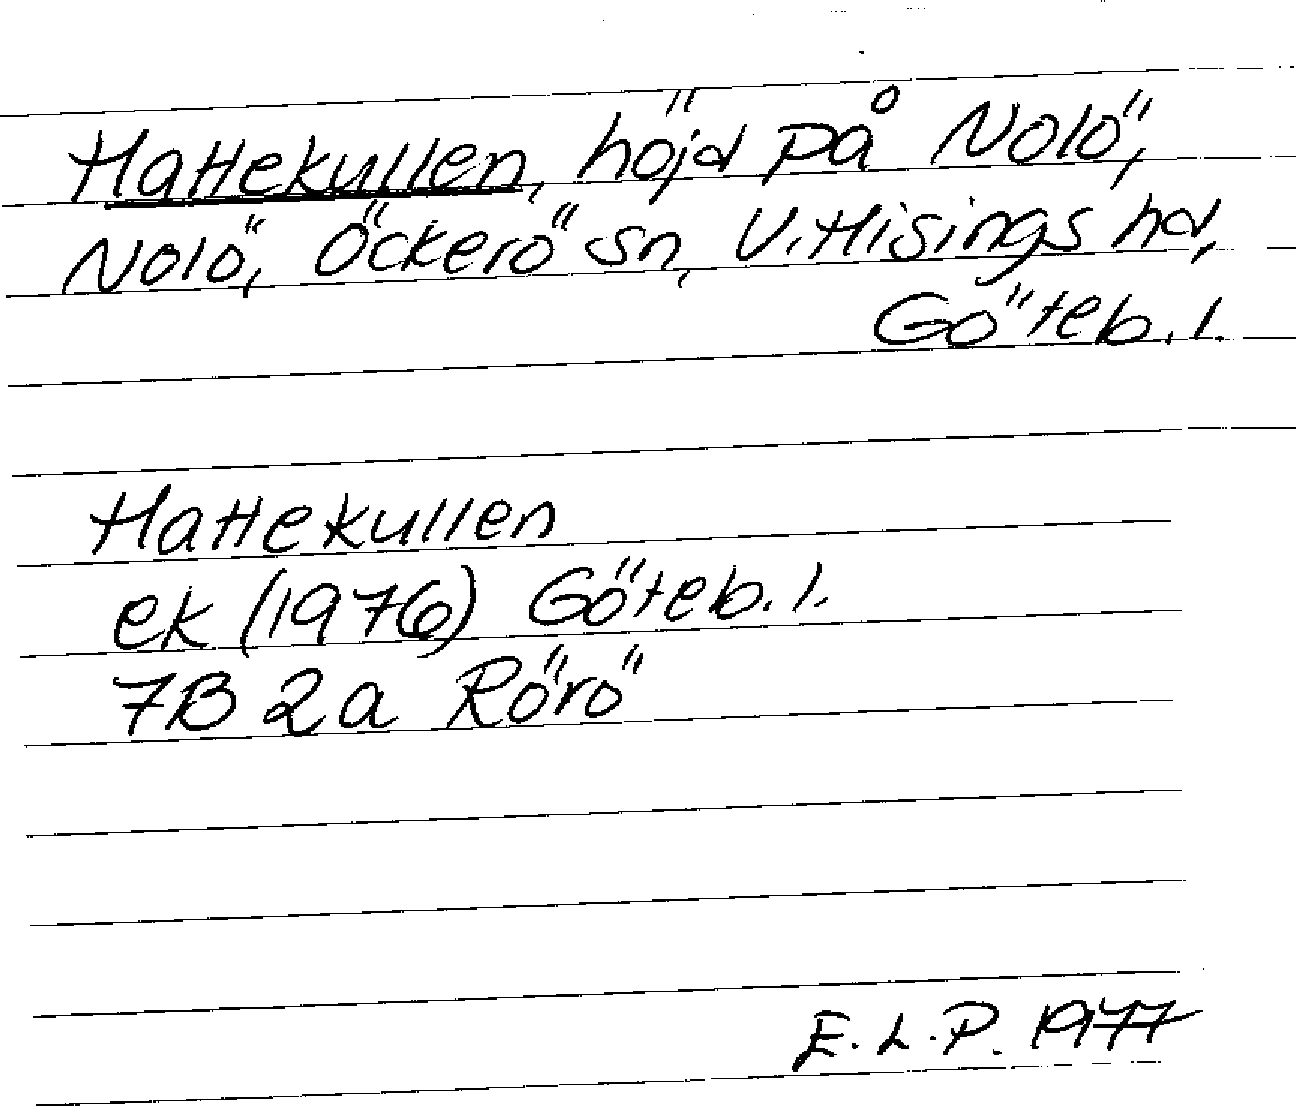 Hattekullen, höjd på Nolö,
Nolö, Öckerö sn, V. Hisings hd,
Göteb. l.
Hattekullen
ek (1976) Göteb. l.
7B 2a Rörö
E. L. P. 1977